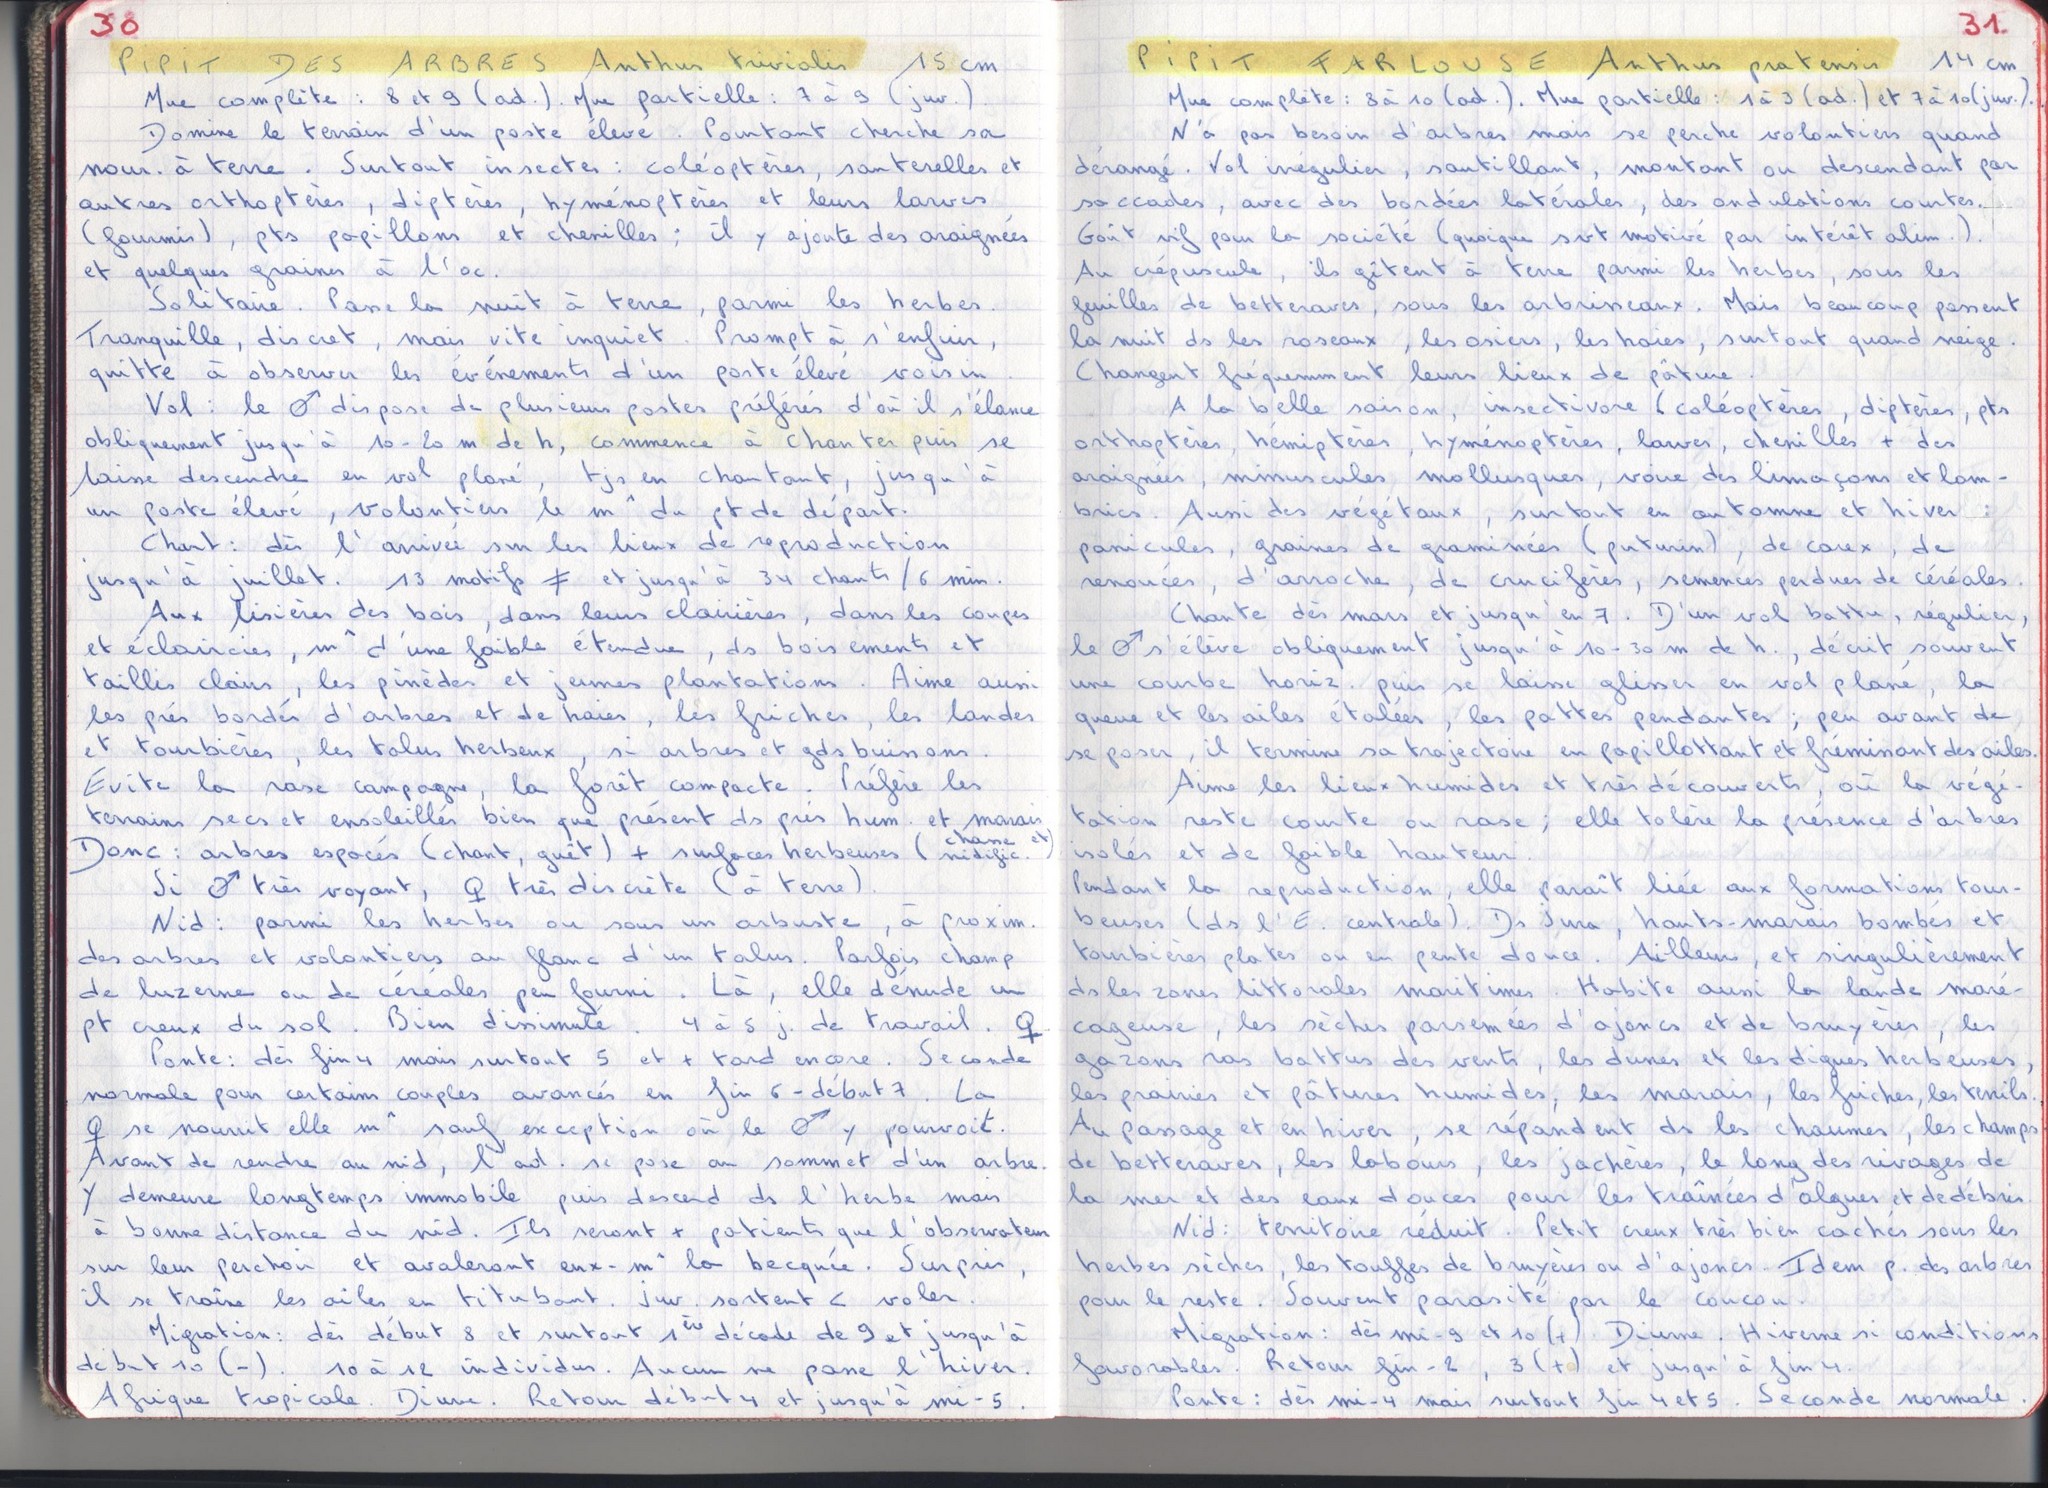 30
PIPIT DES ARBRES Anthus trivialis 15 cm
Mue complète : 8 et 9 (ad.). Mue partielle : 7 à 9 (juv.).
Domine le terrain d'un poste élevé. Pourtant cherche sa
nour. à terre. Surtout insectes : coléoptères, sauterelles et
autres orthoptères, diptères, hyménoptères et leurs larves
(fourmis), pts papillons et chenilles ; il y ajoute des araignées
et quelques graines à l'oc.
Solitaire. Passe la nuit à terre, parmi les herbes.
Tranquille, discret, mais vite inquiet. Prompt à s'enfuir,
quitte à observer les événements d'un poste élevé voisin.
Vol : le ♂ dispose de plusieurs postes préférés d'où il s'élance
obliquement jusqu'à 10-20 m de h, commence à chanter puis se
laisse descendre en vol plané, tjs en chantant, jusqu'à
un poste élevé, volontiers le m^ du pt de départ.
Chant : dès l'arrivée sur les lieux de reproduction
jusqu'à juillet. 13 motifs ≠ et jusqu'à 34 chants / 6 min.
Aux lisières des bois, dans leurs clairières, dans les coupes
et éclaircies, m^ d'une faible étendue, ds boisements et
taillis clairs, les pinèdes et jeunes plantations. Aime aussi
les prés bordés d'arbres et de haies, les friches, les landes
et tourbières, les talus herbeux, si arbres et gds buissons.
Evite la rase campagne, la forêt compacte. Préfère les
terrains secs et ensoleillés bien que présent ds prés hum. et marais
Donc : arbres espacés (chant, guêt) + surfaces herbeuses (chasse et nidific.)
Si ♂ très voyant, ♀ très discrète (à terre).
Nid : parmi les herbes ou sous un arbuste, à proxim.
des arbres et volontiers au flanc d'un talus. Parfois champ
de luzerne ou de céréales peu fourni. Là, elle dénude un
pt creux du sol. Bien dissimulé. 4 à 5 j. de travail. ♀
Ponte : dès fin 4 mais surtout 5 et + tard encore. Seconde
normale pour certains couples avancés en fin 6 - début 7. La
♀ se nourrit elle m^ sauf exception où le ♂ y pourvoit.
Avant de rendre au nid, l'ad. se pose au sommet d'un arbre.
Y demeure longtemps immobile puis descend ds l'herbe mais
à bonne distance du nid. Ils seront + patients que l'observateur
sur leur perchoir et avaleront eux-m^ la becquée. Surpris,
il se traîne les ailes en titubant. Juv. sortent < voler.
Migration : dès début 8 et surtout 1ère décade de 9 et jusqu'à
début 10 (-). 10 à 12 individus. Aucun ne passe l'hiver.
Afrique tropicale. Diurne. Retour début 4 et jusqu'à mi-5.
31.
PIPIT FARLOUSE Anthus pratensis 14 cm
Mue complète : 8 à 10 (ad.). Mue partielle : 1 à 3 (ad.) et 7 à 10 (juv.).
N'a pas besoin d'arbres mais se perche volontiers quand
dérangé. Vol irrégulier, sautillant, montant ou descendant par
saccades, avec des bordées latérales, des ondulations courtes.
Goût vif pour la société (quoique svt motivé par intérêt alim.).
Au crépuscule, ils gîtent à terre parmi les herbes, sous les
feuilles de betteraves, sous les arbrisseaux. Mais beaucoup passent
la nuit ds les roseaux, les osiers, les haies, surtout quand neige.
Changent fréquemment leurs lieux de pâture.
A la belle saison, insectivore (coléoptères, diptères, pts
orthoptères, hémiptères, hyménoptères, larves, chenilles + des
araignées, minuscules mollusques, voire des limaçons et lom-
brics. Aussi des végétaux, surtout en automne et hiver :
panicules, graines de graminées (puturin), de carex, de
renouées, d'arroche, de crucifères, semences perdues de céréales.
Chante dès mars et jusqu'en 7. D'un vol battu, régulier,
le ♂ s'élève obliquement jusqu'à 10-30 m de h., décrit souvent
une courbe horiz. puis se laisse glisser en vol plané, la
queue et les ailes étalées, les pattes pendantes ; peu avant de
se poser, il termine sa trajectoire en papillottant et fréminant des ailes.
Aime les lieux humides et très découverts, où la végé-
tation reste courte ou rase ; elle tolère la présence d'arbres
isolés et de faible hauteur.
Pendant la reproduction, elle paraît liée aux formations tour-
beuses (ds l'E. centrale). Ds Jura, hauts-marais bombés et
tourbières plates ou en pente douce. Ailleurs, et singulièrement
ds les zones littorales maritimes. Habite aussi la lande maré-
cageuse, les sèches parsemées d'ajoncs et de bruyères, les
gazons ras battus des vents, les dunes et les digues herbeuses,
les prairies et pâtures humides, les marais, les friches, les terrils.
Au passage et en hiver, se répandent ds les chaumes, les champs
de betteraves, les labours, les jachères, le long des rivages de
la mer et des eaux douces pour les traînées d'algues et de débris.
Nid : territoire réduit. Petit creux très bien cachés sous les
herbes sèches, les touffes de bruyères ou d'ajoncs. Idem p. des arbres
pour le reste. Souvent parasité par le coucou.
Migration : dès mi-9 et 10 (+). Diurne. Hiverne si conditions
favorables. Retour fin-2, 3 (+) et jusqu'à fin 4.
Ponte : dès mi-4 mais surtout fin 4 et 5. Seconde normale.